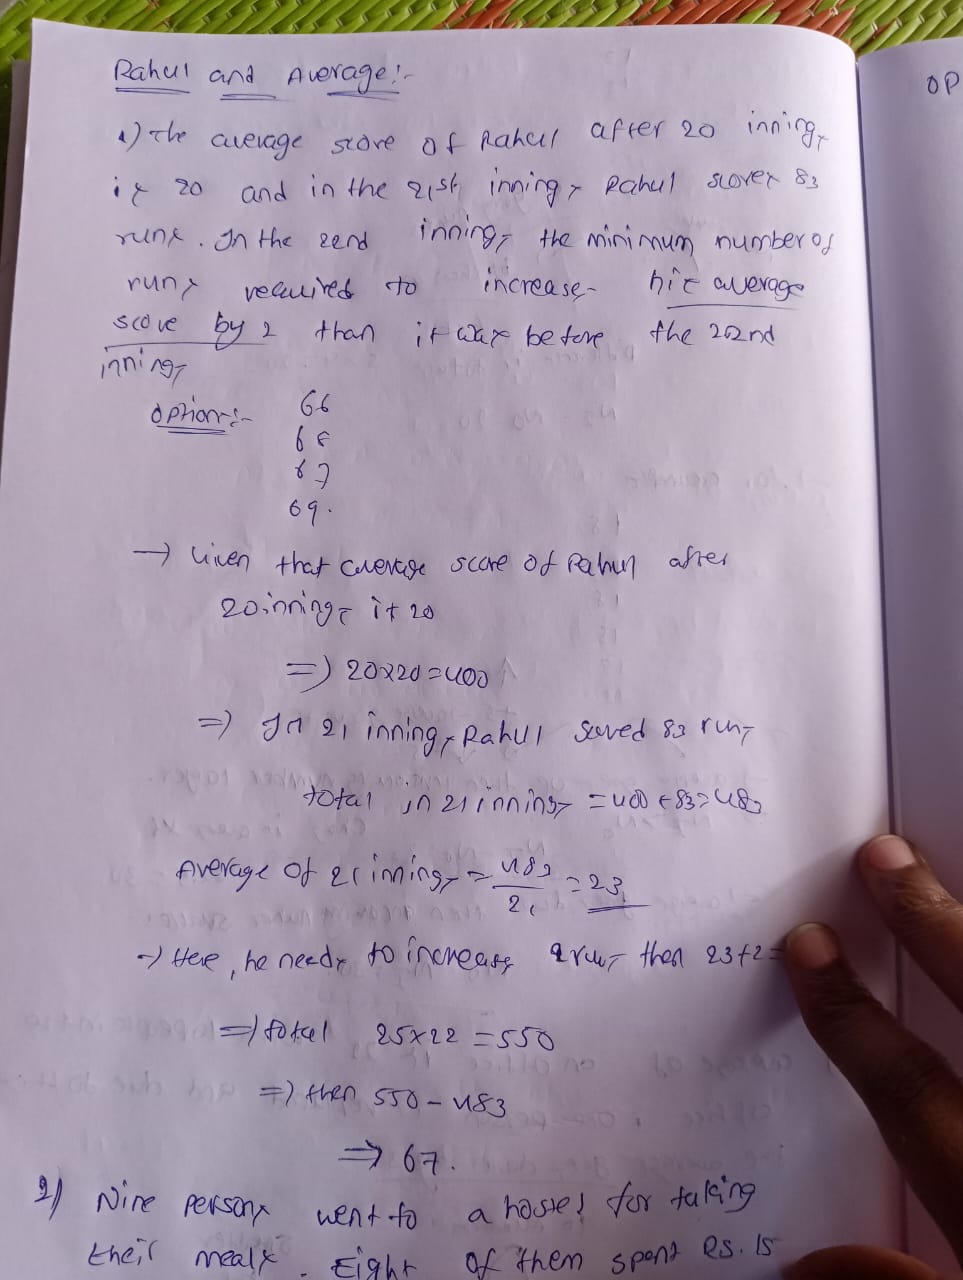 Rahul and Average:-
1) The average score of Rahul after 20 innings
is 20 and in the 21st innings Rahul scores 83
runs. In the 22nd innings the minimum number of
runs required to increase his average
score by 2 than it was before the 22nd
innings
Options:-
66
68
67
69.
→ Given that average score of Rahul after
20 innings is 20
⇒ 20x20=400
⇒ In 21 innings Rahul scored 83 runs
total in 21 innings = 400+83=483
Average of 21 innings = 483/21 = 23
→ Here, he needs to increase 2 runs then 23+2=
⇒ total 25x22=550
⇒ then 550-483
⇒ 67.
2) Nine persons went to a hostel for taking
their meals. Eight of them spent Rs. 15
OP